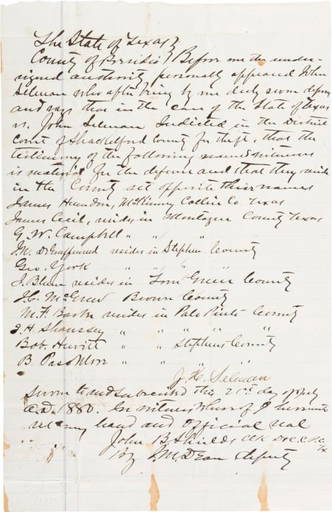 The State of Texas }
County of Presidio } Before me the under-
signed authority personally appeared John
Selman who after being by me duly sworn deposes
and says that in the case of the State of Texas
vs. John Selman Indicted in the District
Court of Shackelford County for theft, that the
testimony of the following named witnesses
is material for the defence and that they reside
in the County set opposite their names
James Herndon, McKinney Collin Co Texas
James Cecil, resides in Montague County Texas
G. W. Campbell " " "
J. M. DeGraffenreid resides in Stephens County
Geo. York " " " "
J. Blum resides in Tom Green County
McGrew Brown County
M. F. Barber resides in Palo Pinto County
J. H. " " " "
Bob. Hewitt " " Stephens County
B " " " "
J. H. Selman
Sworn to and subscribed this 2nd day of July
A.D. 1880. In witness whereof I hereunto
set my hand and official seal
John B. Shields Clk
By J M Dean deputy